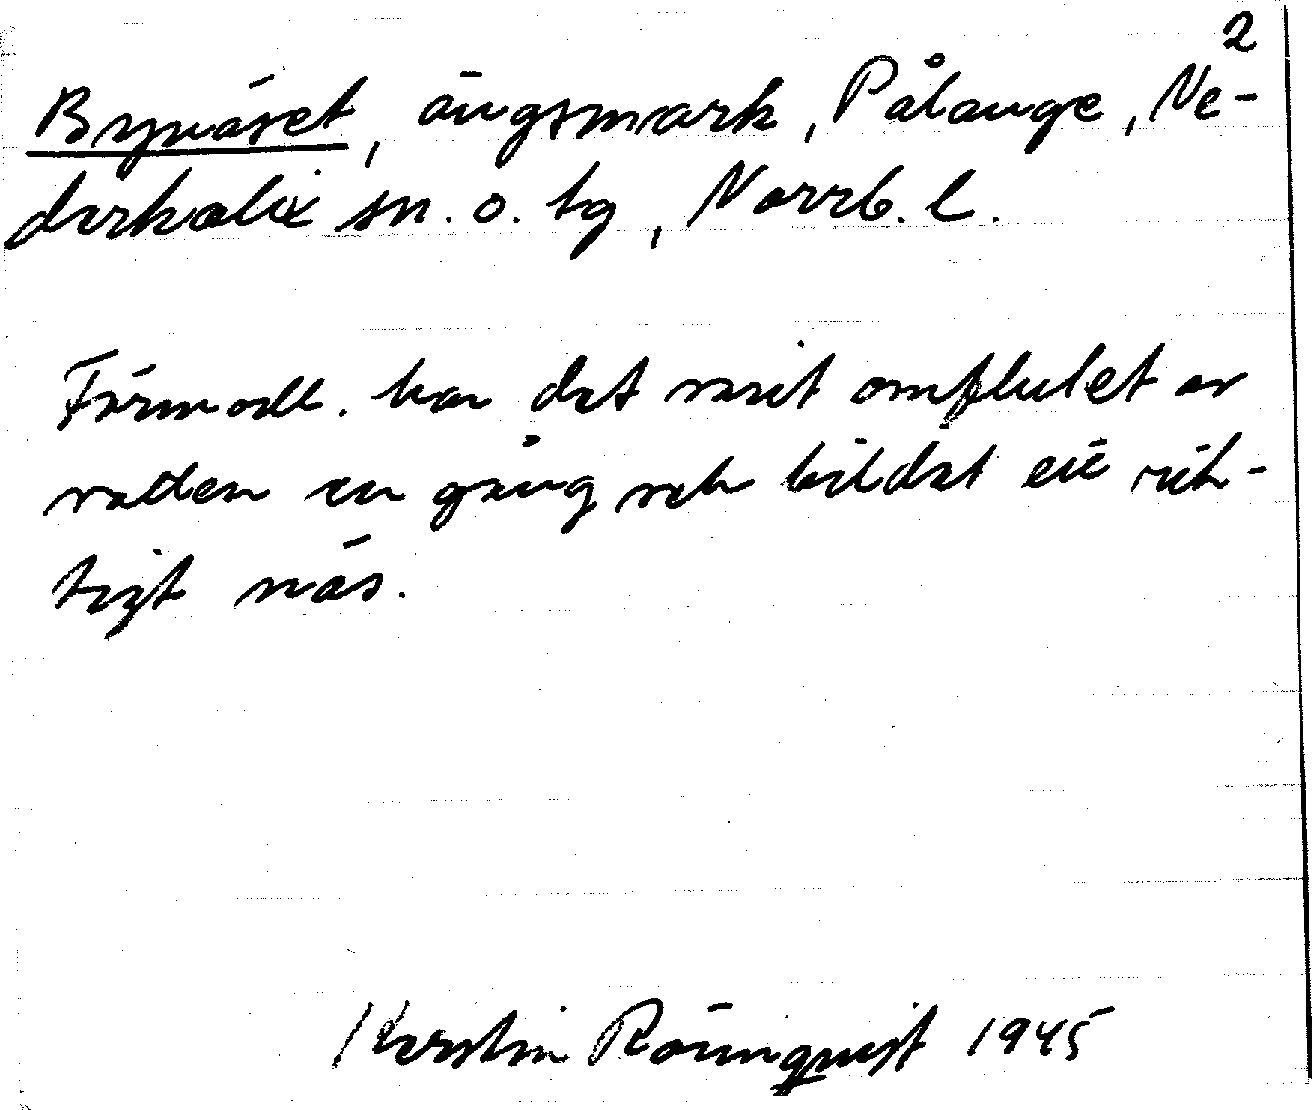 2
Bynäset, ängsmark, Pålänge, Ne-
derkalix sn. o. tg, Norrb. l.
Förmodl. har det varit omflutet av
vatten en gång och bildat ett rik-
tigt näs.
Kerstin Rönnquist 1945